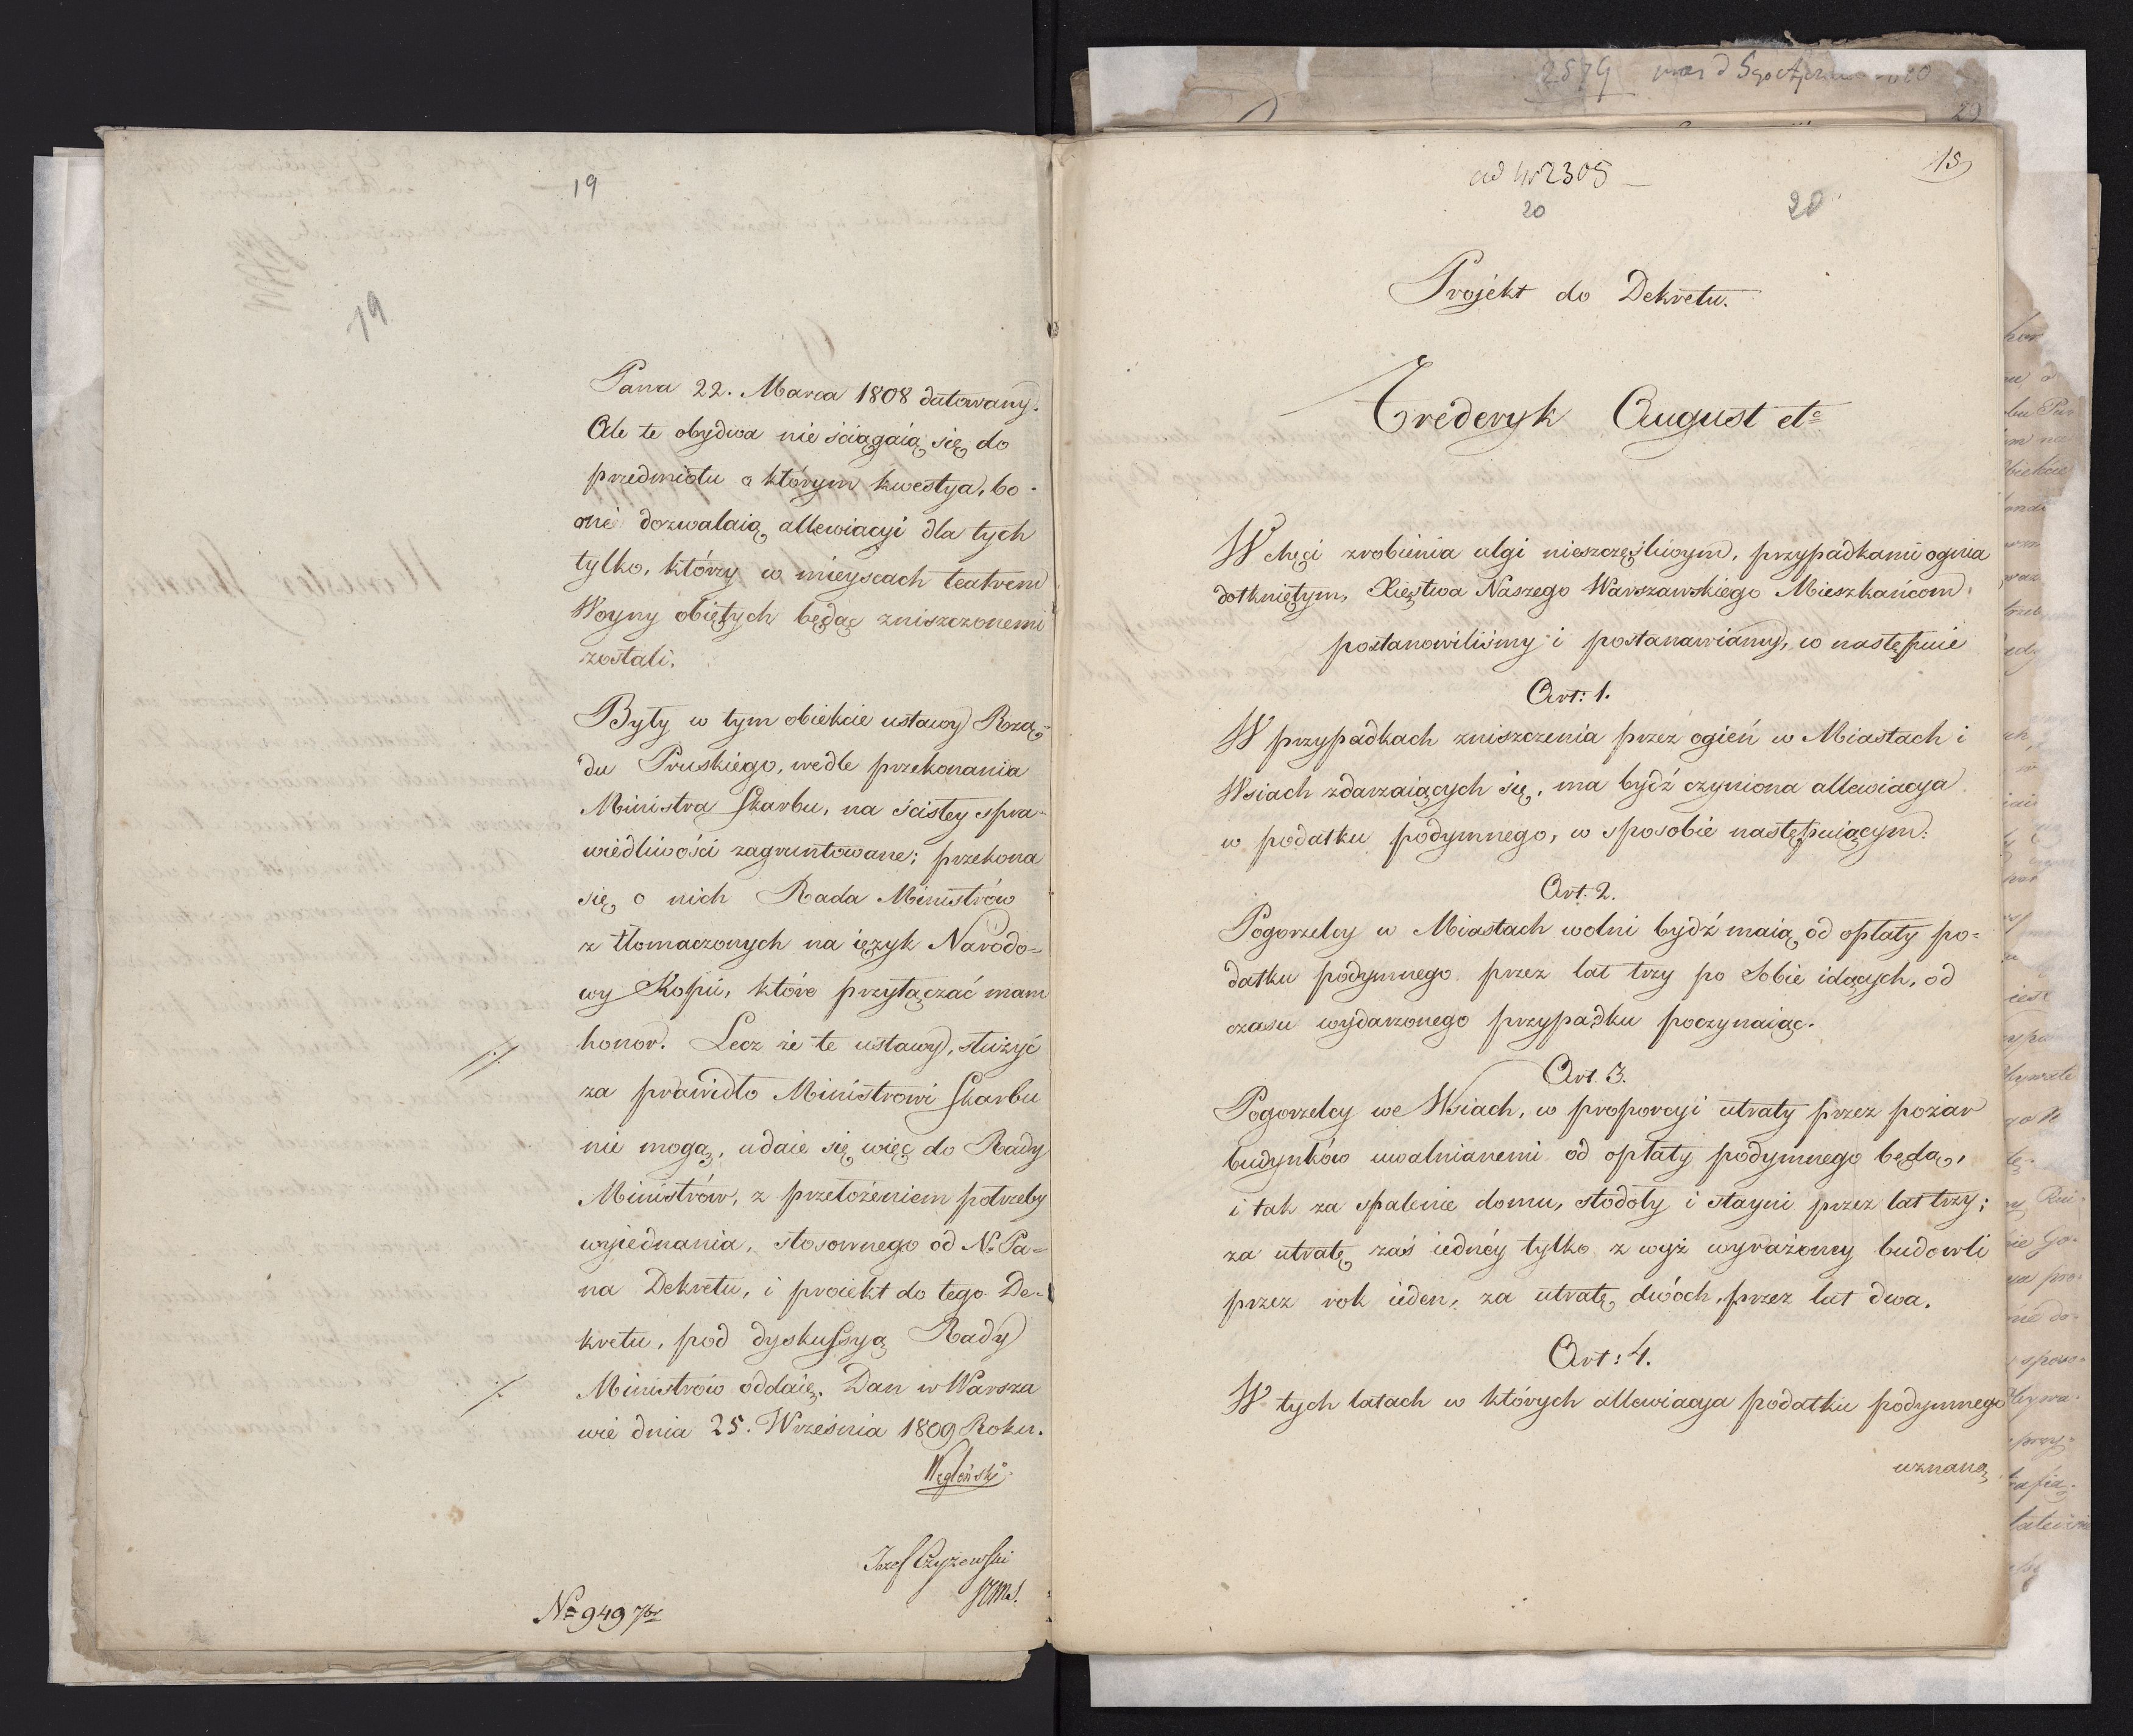 19
19
Pana 22. Marca 1808 datowany.
Ale te obydwa nie ściągaią się do
przedmiotu o którym kwestya, bo
one dozwalaią allewiacyi dla tych
tylko, którzy w mieyscach teatrem
Woyny obiętych będąc zniszczonemi
zostali.
Były w tym obiekcie ustawy Rzą-
du Pruskiego, wedle przekonania
Ministra Skarbu, na ścisłey spra-
wiedliwości zagruntowane; przekona
się o nich Rada Ministrów
z tłomaczonych na ięzyk Narodo=
wy Kopii, które przyłączać mam
honor. Lecz że te ustawy, służyć
za prawidło Ministrowi Skarbu
nie mogą, udaie się więc do Rady
Ministrów, z przełożeniem potrzeby
wyiednania, stosownego od N. Pa=
na Dekretu, i proiekt do tego De-
kretu, pod dyskussyą Rady
Ministrów oddaię. Dan w Warsza
wie dnia 25. Września 1809 Roku.
Węgleński
Józef Czyżewski
No 949 7br
15
ad Nr 2305
20
20
Projekt do Dekretu.
Frederyk August etc
W chęci zrobienia ulgi nieszczęśliwym, przypadkami ognia
dotkniętym, Xięstwa Naszego Warszawskiego Mieszkańcom,
postanowiliśmy i postanawiamy, co następuie
Art: 1.
W przypadkach zniszczenia przez ogień w Miastach i
Wsiach zdarzaiących się, ma bydź czyniona allewiacya
w podatku podymnego, w sposobie następuiącym:
Art. 2.
Pogorzelcy w Miastach wolni bydź maią od opłaty po=
datku podymnego przez lat trzy po sobie idących, od
czasu wydarzonego przypadku poczynaiąc.
Art. 3.
Pogorzelcy we Wsiach, w proporcyi utraty przez pożar
budynków uwalnianemi od opłaty podymnego będą,
i tak za spalenie domu, stodoły i stayni przez lat trzy;
za utratę zaś iednéy tylko z wyż wyrażoney budowli
przez rok ieden, za utratę dwóch, przez lat dwa.
Art: 4.
W tych latach w których allewiacya podatku podymnego
uznaną